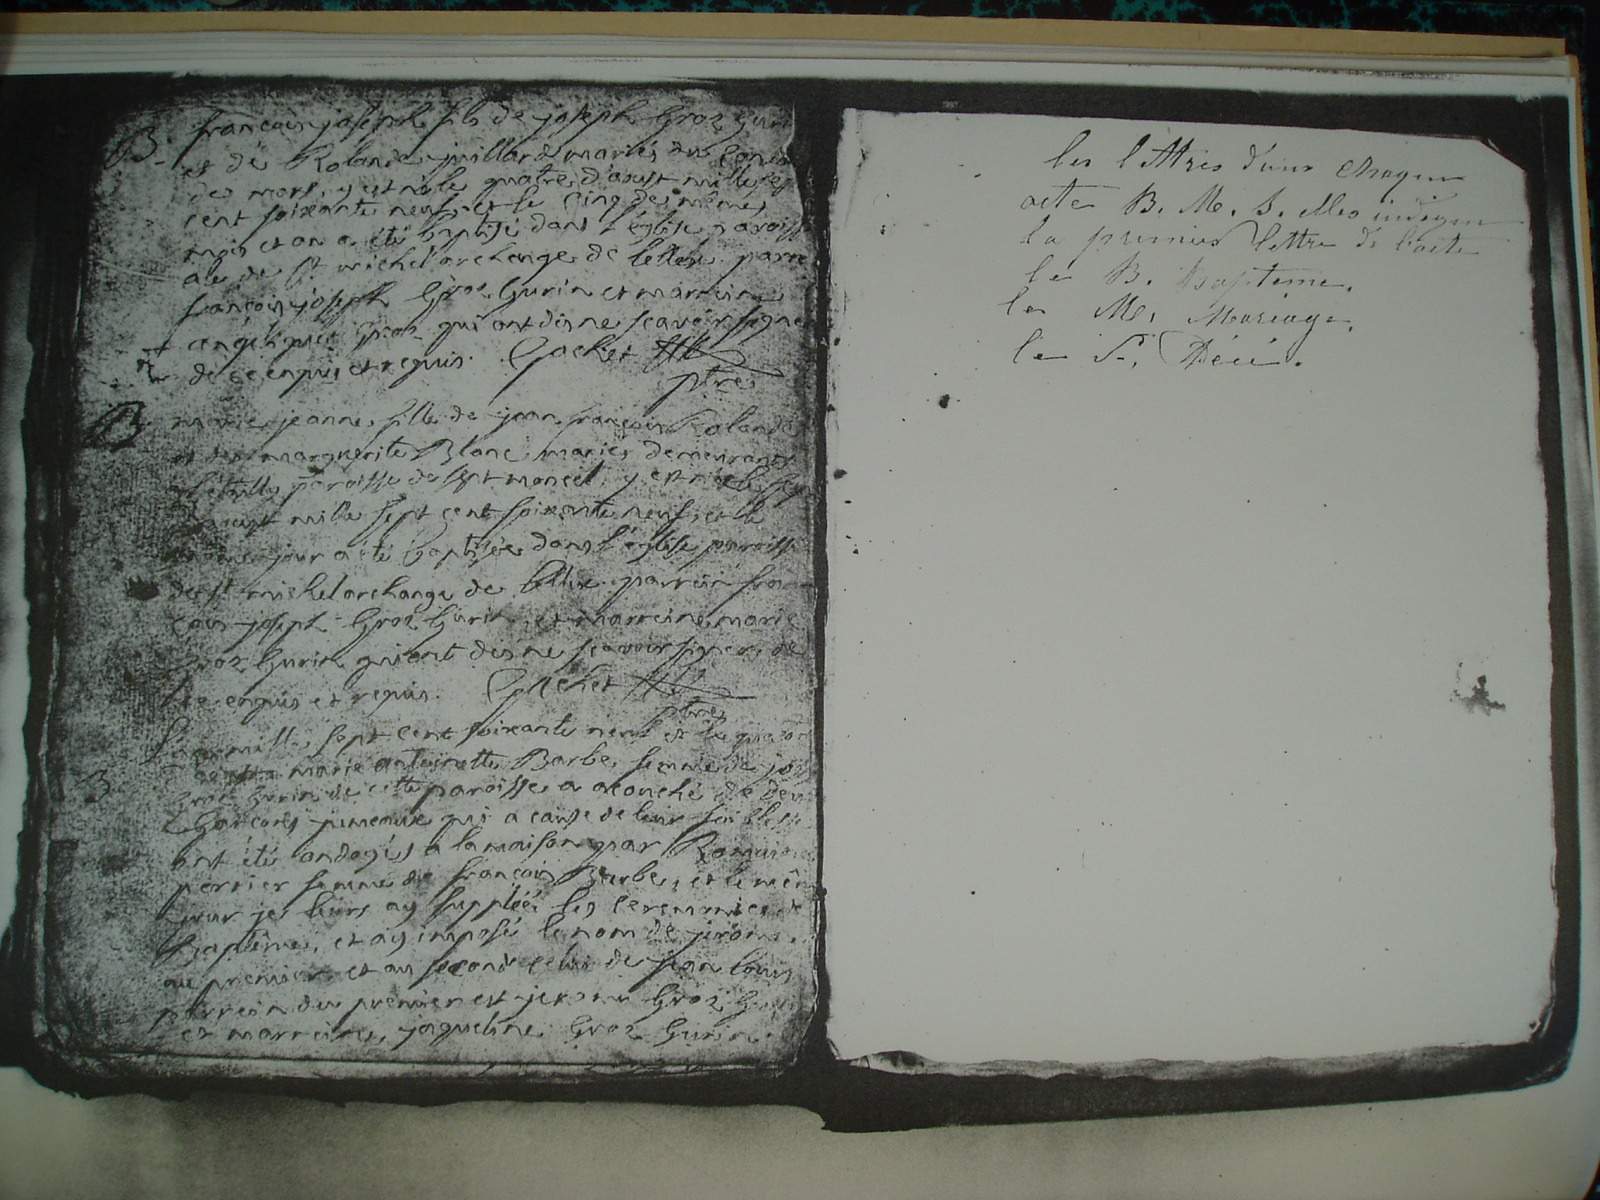 B. françois joseph fils de joseph Groz Gurin
et de Rolande juillard mariés du
des mort, y est né le quatre d'aoust mille sept
cent soixante neuf, et le cinq des mêmes
mois et an a été baptisé dans l'église paroissi
ale de St michel archange de lellex. parrein
françois joseph Groz Gurin et marreine
angelique Groz qui ont dis ne scavoir signer
de ce enquis et requis. Gachet
ptre
B marie jeanne, fille de jean françois Rolande
et de marguerite Blanc mariés demeurants
paroisse de Sept moncel, y est née le
d'aoust mille sept cent soixante neuf, et le
même jour a été baptisée dans l'église paroissi
de St michel archange de lellex. parrein fran
çois joseph Groz Gurin, et marreine marie
Groz Gurin qui ont dis ne scavoir signer, de
ce enquis et requis. Gachet
ptre
L'an mille sept cent soixante neuf et le
marie antoinette Barbe, femme de
B Groz Gurin de cette paroisse a acouché de deux
Garçons jumeaux qui a cause de leur foiblesse
ont été ondoyés a la maison par Romaine
perrier femme de françois Barbe, et le même
jour je leurs ay suppléé les ceremonies de
Baptême, et ay imposé le nom de jérome
au premier et au second celui de jean louis
parrein du premier est jerome Groz Gurin
et marreine, jaqueline Groz Gurin.
les lettres d'une chaque
acte B. M. S. elles indique
la premier lettre de l'acte
le B. Baptême.
les M, Mariage,
le S, Décé.